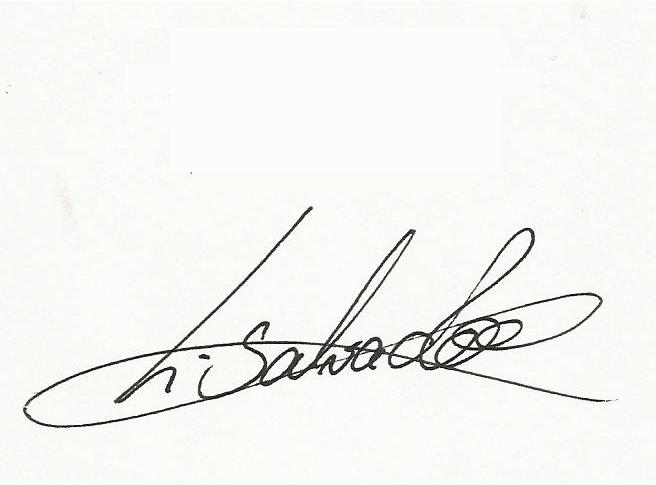 h. Salvador